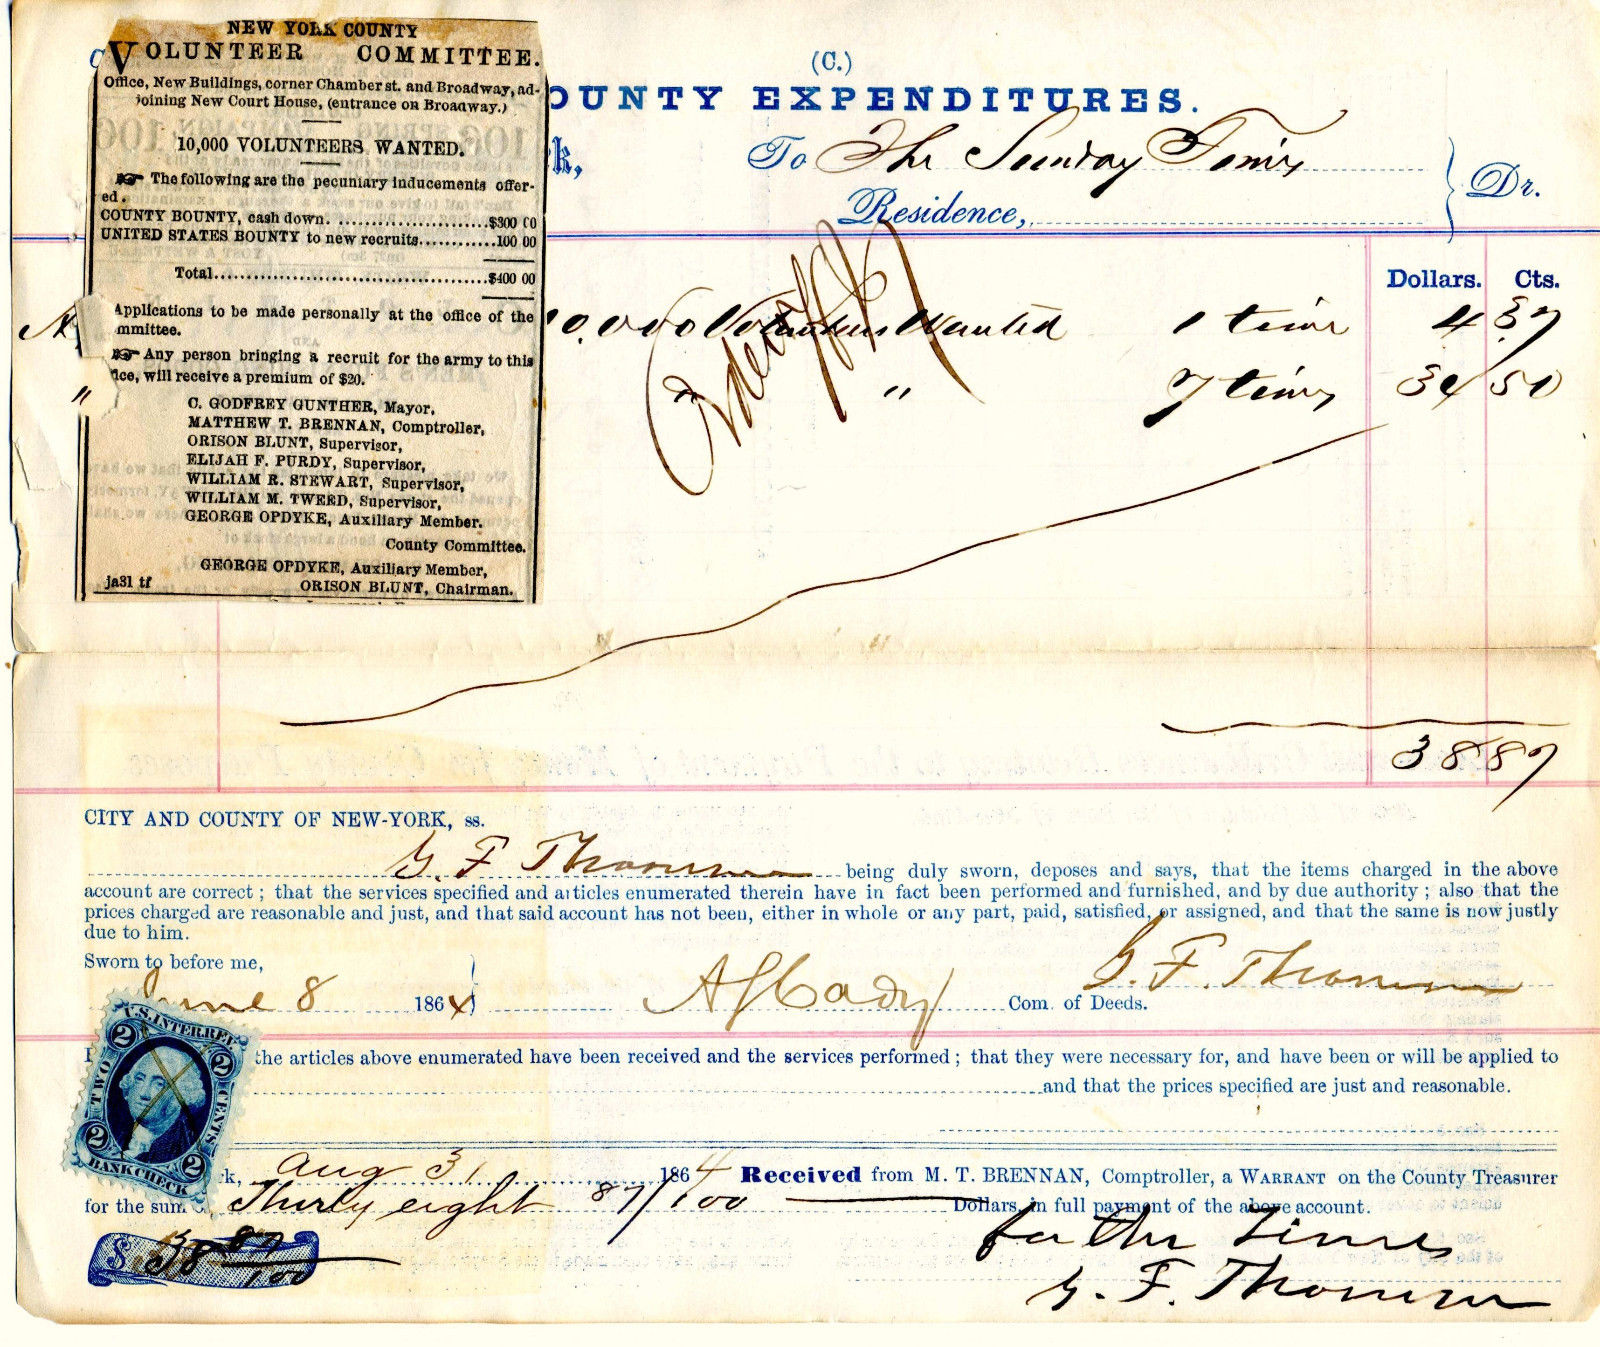 NEW YORK COUNTY
VOLUNTEER COMMITTEE.
Office, New Buildings, corner Chamber st. and Broadway, ad-
joining New Court House, (entrance on Broadway.)
10,000 VOLUNTEERS WANTED.
The following are the pecuniary inducements offer-
ed.
COUNTY BOUNTY, cash down. .......................$300 00
UNITED STATES BOUNTY to new recruits............100 00
Total.......................................$400 00
Applications to be made personally at the office of the
mmittee.
Any person bringing a recruit for the army to this
ice, will receive a premium of $20.
C. GODFREY GUNTHER, Mayor,
MATTHEW T. BRENNAN, Comptroller,
ORISON BLUNT, Supervisor,
ELIJAH F. PURDY, Supervisor,
WILLIAM R. STEWART, Supervisor,
WILLIAM M. TWEED, Supervisor,
GEORGE OPDYKE, Auxiliary Member.
County Committee.
GEORGE OPDYKE, Auxiliary Member,
ja31 tf ORISON BLUNT, Chairman.
(C.)
OUNTY EXPENDITURES.
k, To The Sunday Times Dr.
Residence,
Dollars. Cts.
10.000 Volunteers Wanted 1 time 4 37
" " " 7 times 34 50
38 87
CITY AND COUNTY OF NEW-YORK, ss.
G. F. Thomson being duly sworn, deposes and says, that the items charged in the above
account are correct ; that the services specified and articles enumerated therein have in fact been performed and furnished, and by due authority ; also that the
prices charged are reasonable and just, and that said account has not been, either in whole or any part, paid, satisfied, or assigned, and that the same is now justly
due to him.
Sworn to before me,
June 8 1864 Com. of Deeds. G. F. Thomson
the articles above enumerated have been received and the services performed ; that they were necessary for, and have been or will be applied to
and that the prices specified are just and reasonable.
U.S. INTER. REV.
2 2
TWO CENTS
2 2
BANK CHECK
k, Aug 31 1864 Received from M. T. BRENNAN, Comptroller, a WARRANT on the County Treasurer
for the sum o Thirty eight 87/100 Dollars, in full payment of the above account.
$ 38 87/100
for the Times
G. F. Thomson